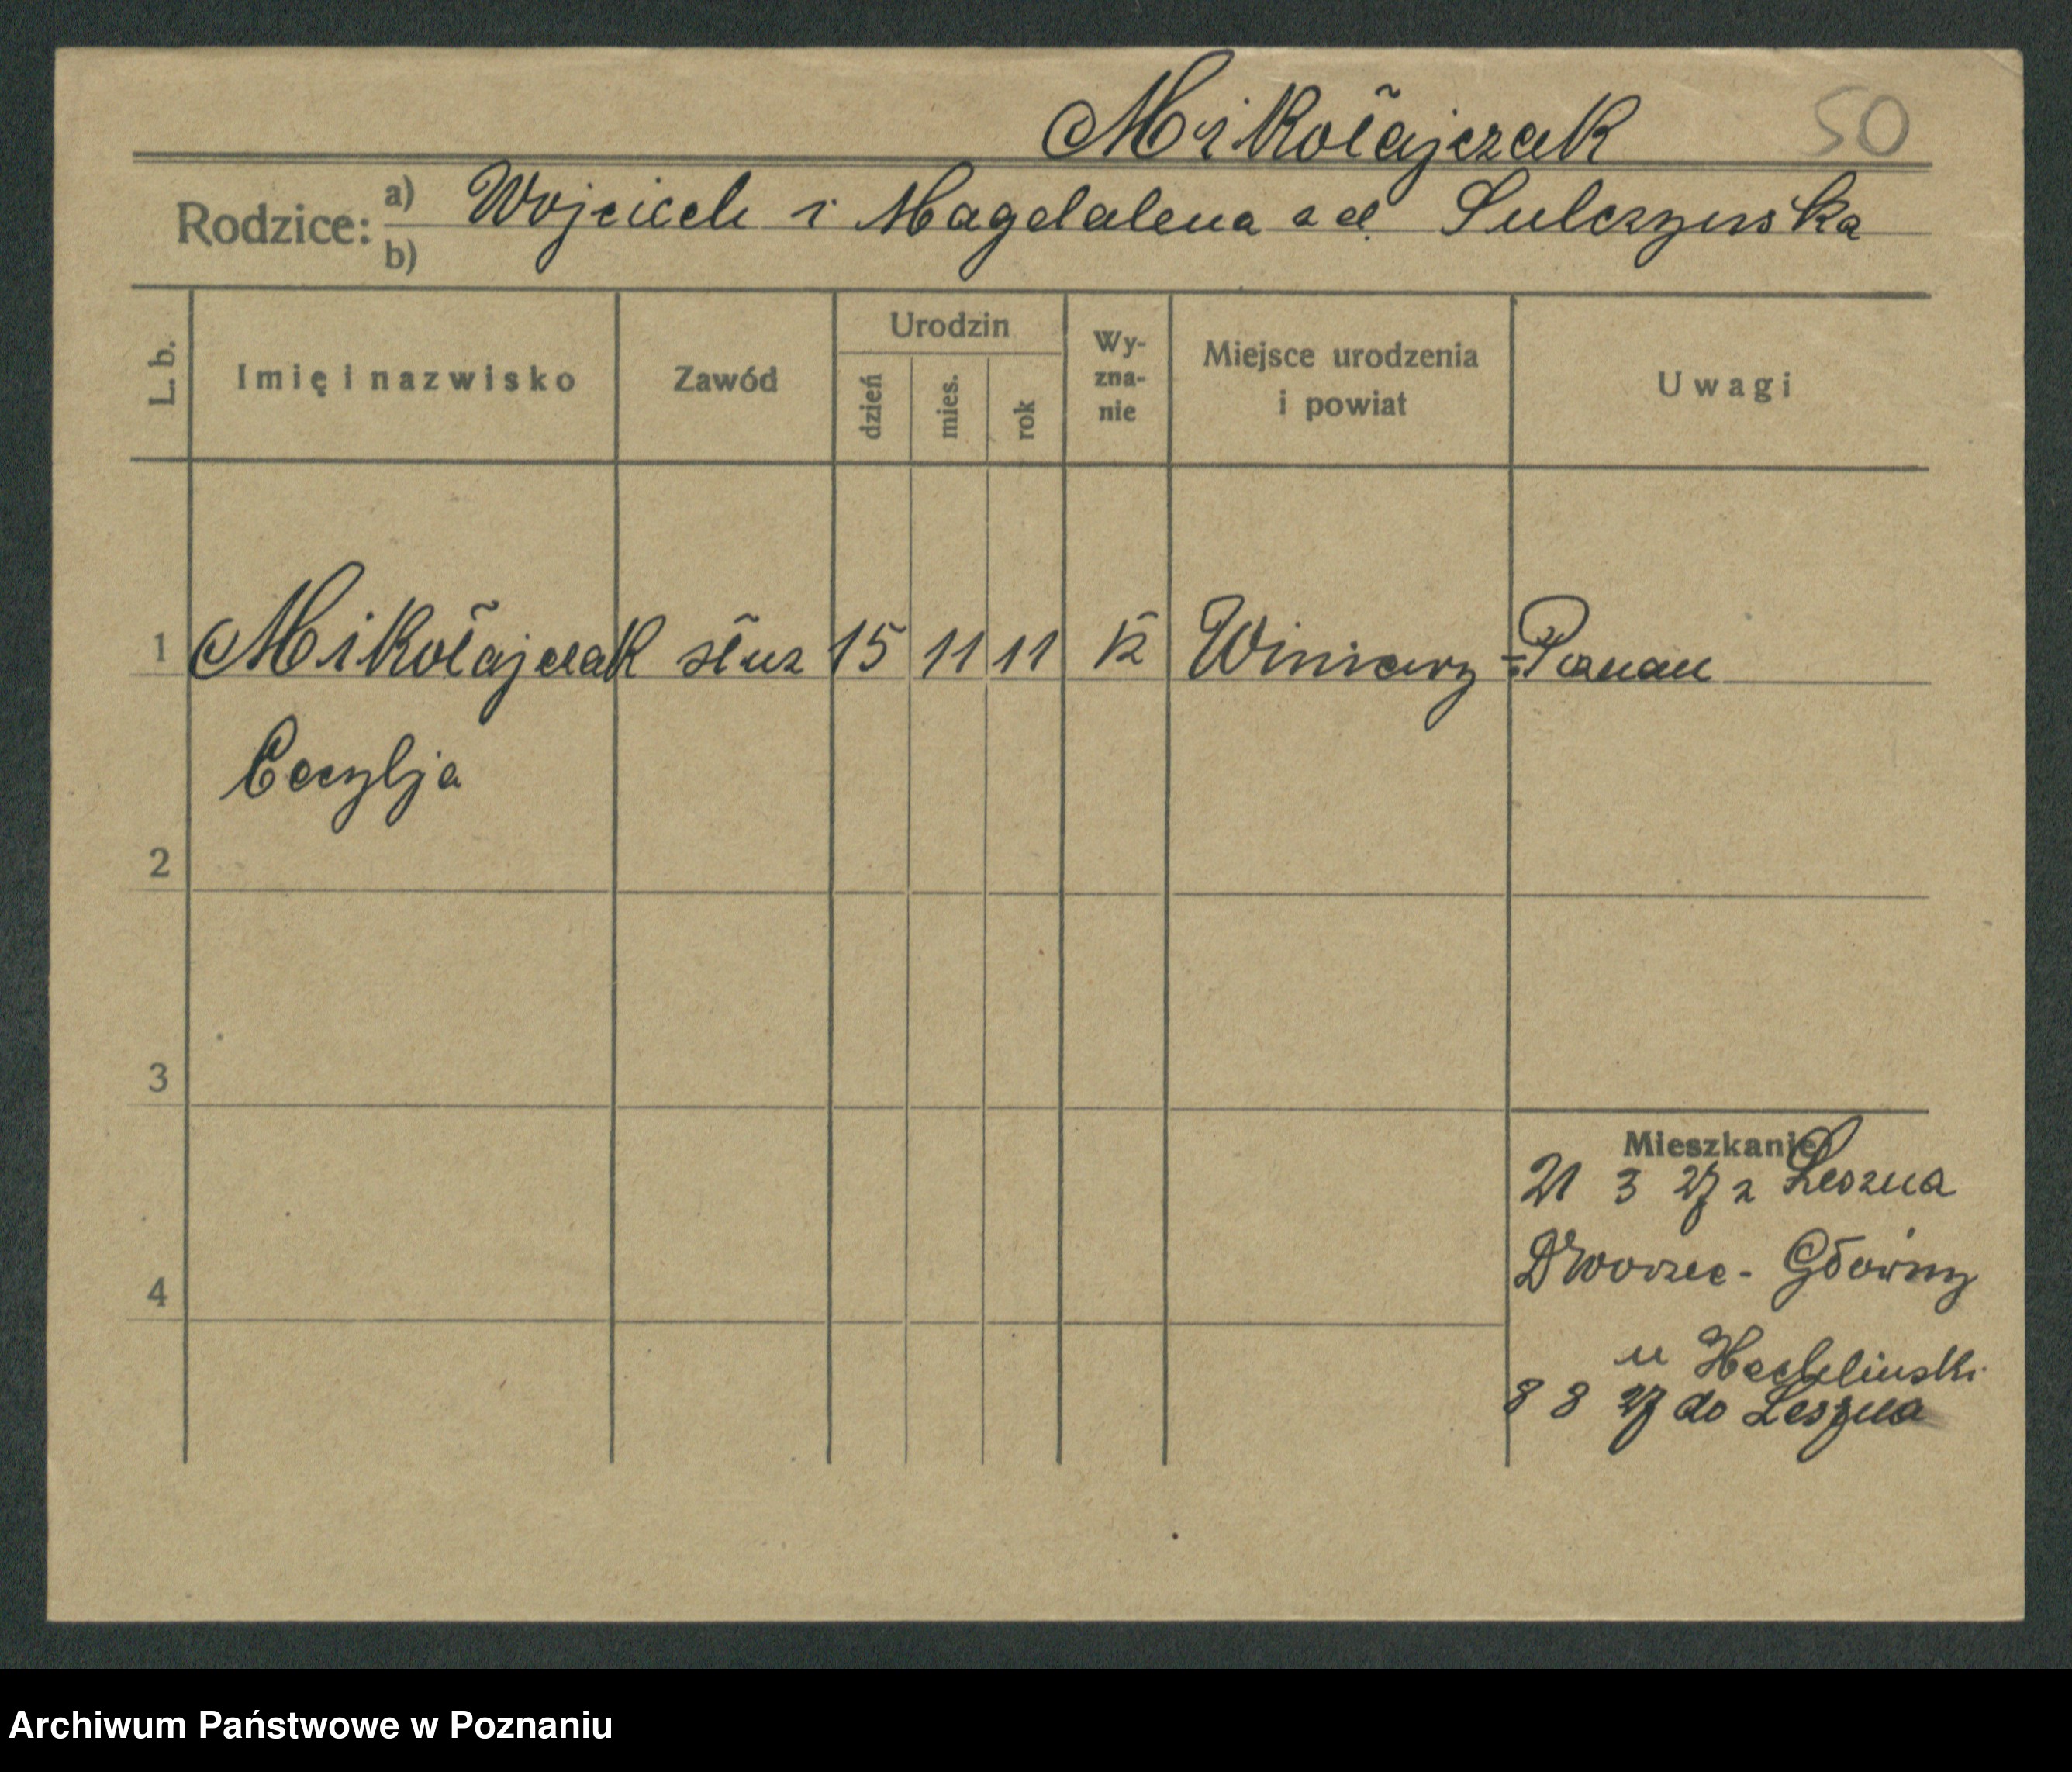 Mikołajczak 50
Rodzice: a) Wojciech i Magdalena z d. Sulczynska
b)
L. b. Imię i nazwisko Zawód Urodzin dzień mies. rok Wy-zna-nie Miejsce urodzenia i powiat Uwagi
1 Mikołajczak służ 15 11 11 k Winiary - Poznan
Cecylja
2
3
Mieszkanie
21 3 27 z Leszna
4 Dworzec - Główny
u
8 8 27 do Leszna
Archiwum Państwowe w Poznaniu